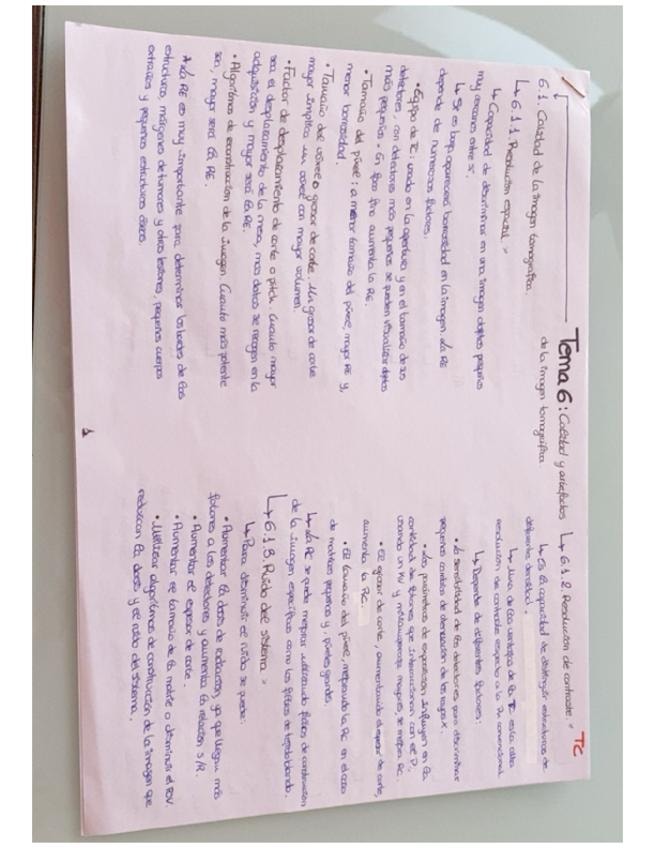 TC
Tema 6: Calidad y artefactos
de la imagen tomográfica
6.1. Calidad de la imagen tomográfica.
↳ 6.1.1. Resolución espacial.
↳ Capacidad de discriminar en una imagen objetos pequeños
muy cercanos entre sí.
↳ Si es baja, aparecerá borrosidad en la imagen. La RE
depende de numerosos factores.
• Equipo de TC: usado en la apertura y en el tamaño de sus
detectores, con detectores más pequeños se pueden visualizar objetos
más pequeños. En foco fino aumenta la RE.
• Tamaño del píxel: a menor tamaño del píxel, mayor RE y,
menor borrosidad.
• Tamaño del vóxel o grosor de corte. Un grosor de corte
mayor implica un vóxel con mayor volumen.
• Factor de desplazamiento de corte o pitch. Cuanto mayor
sea el desplazamiento de la mesa, más datos se recogen en la
adquisición y mayor será la RE.
• Algoritmos de reconstrucción de la imagen. Cuanto más potente
sea, mayor será la RE.
RE es muy importante para determinar los bordes de las
estructuras, márgenes de tumores y otras lesiones, pequeños cuerpos
extraños y pequeñas estructuras óseas.
1
↳ 6.1.2. Resolución de contraste.
↳ Es la capacidad de distinguir estructuras de
diferente densidad.
↳ Una de las ventajas de la TC es la alta
resolución de contraste respecto a la Rx convencional
↳ Depende de diferentes factores:
• La sensibilidad de los detectores para discriminar
pequeños cambios de atenuación de los rayos X.
• Los parámetros de exposición influyen en la
cantidad de fotones que interaccionan con el P.
usando un kV y miliamperaje mayores, se mejora RC.
• El grosor de corte, aumentando el grosor de corte,
aumenta la RC.
• El tamaño del píxel, mejorando la RC en el caso
de matrices pequeñas y píxeles grandes.
↳ La RC se puede mejorar utilizando filtros de construcción
de la imagen específicos como los filtros de tejido blando.
↳ 6.1.3. Ruido del sistema.
↳ Para disminuir el ruido se puede:
• Aumentar la dosis de radiación, ya que llegan más
fotones a los detectores y aumenta la relación S/R.
• Aumentar el espesor de corte.
• Aumentar el tamaño de la matriz o disminuir el FOV.
• Utilizar algoritmos de construcción de la imagen que
reduzcan la dosis y el ruido del sistema.